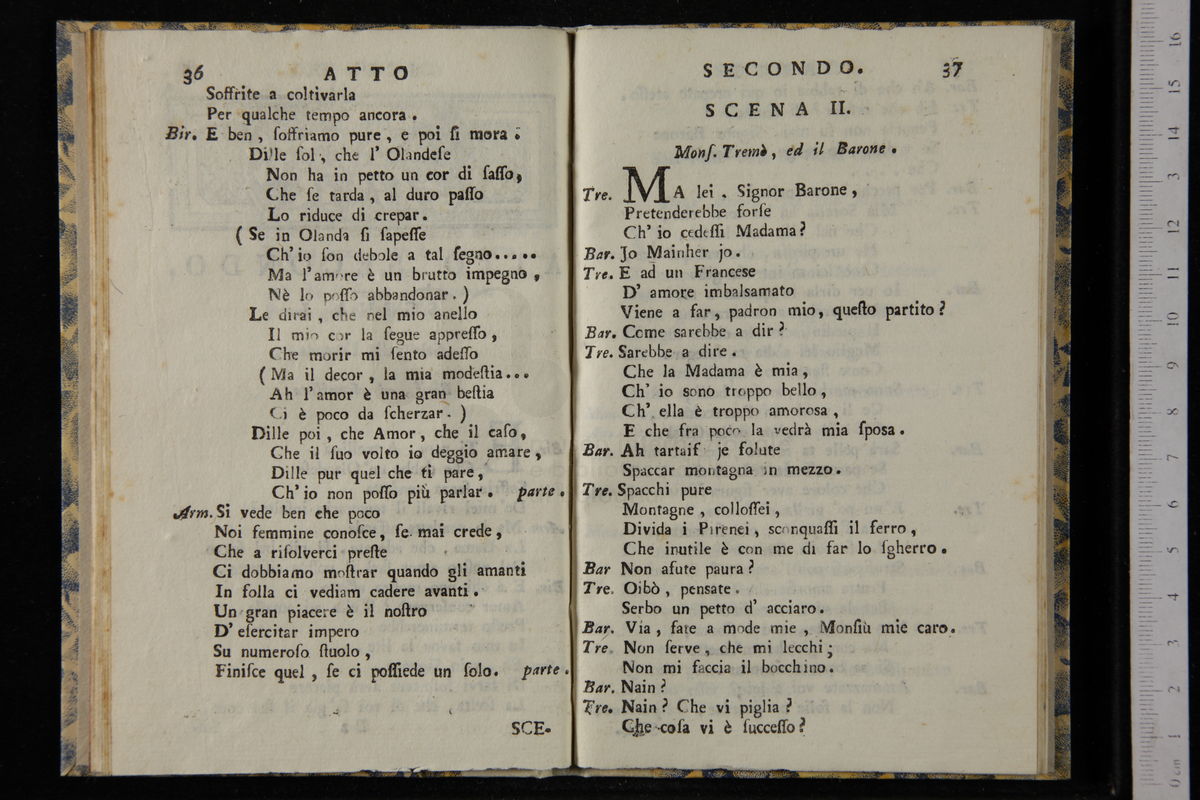 36 ATTO
Soffrite a coltivarla
Per qualche tempo ancora.
Bir. E ben, ſoffriamo pure, e poi ſi mora.
Dille ſol, che l' Olandeſe
Non ha in petto un cor di ſaſſo,
Che ſe tarda, al duro paſſo
Lo riduce di crepar.
(Se in Olanda ſi ſapeſſe
Ch' io ſon debole a tal ſegno.....
Ma l'amore è un brutto impegno,
Nè lo poſſo abbandonar.)
Le dirai, che nel mio anello
Il mio cor la ſegue appreſſo,
Che morir mi ſento adeſſo
(Ma il decor, la mia modeſtia...
Ah l'amor è una gran beſtia
Ci è poco da ſcherzar.)
Dille poi, che Amor, che il caſo,
Che il ſuo volto io deggio amare,
Dille pur quel che ti pare,
Ch' io non poſſo più parlar. parte.
Arm. Si vede ben che poco
Noi femmine conoſce, ſe mai crede,
Che a riſolverci preſte
Ci dobbiamo moſtrar quando gli amanti
In folla ci vediam cadere avanti.
Un gran piacere è il noſtro
D' eſercitar impero
Su numeroſo ſtuolo,
Finiſce quel, ſe ci poſſiede un ſolo. parte.
SCE-
SECONDO. 37
SCENA II.
Monſ. Tremè, ed il Barone.
Tre. MA lei. Signor Barone,
Pretenderebbe forſe
Ch' io cedeſſi Madama?
Bar. Jo Mainher jo.
Tre. E ad un Franceſe
D' amore imbalsamato
Viene a far, padron mio, queſto partito?
Bar. Come sarebbe a dir?
Tre. Sarebbe a dire.
Che la Madama è mia,
Ch' io sono troppo bello,
Ch' ella è troppo amorosa,
E che fra poco la vedrà mia ſposa.
Bar. Ah tartaif je ſolute
Spaccar montagna in mezzo.
Tre. Spacchi pure
Montagne, colloſſei,
Divida i Pirenei, sconquaſſi il ferro,
Che inutile è con me di far lo ſgherro.
Bar Non afute paura?
Tre. Oibò, pensate.
Serbo un petto d' acciaro.
Bar. Via, fate a mode mie, Monſiù mie caro.
Tre. Non ſerve, che mi lecchi;
Non mi faccia il bocchino.
Bar. Nain?
Tre. Nain? Che vi piglia?
Che coſa vi è ſucceſſo?